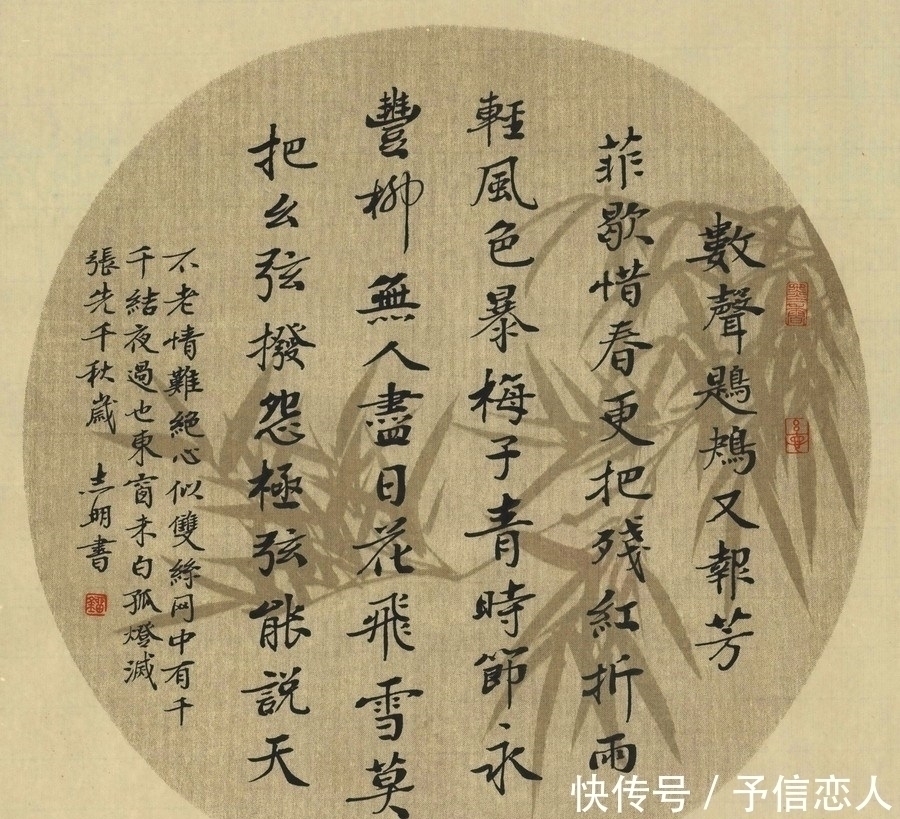 數聲鶗鴂又報芳
菲歇惜春更把殘紅折雨
輕風色暴梅子青時節永
豐柳無人盡日花飛雪莫
把幺弦撥怨極弦能說天
不老情難絕心似雙絲网中有千
千結夜過也東窗未白孤燈滅
張先千秋歲 志明書
快传号 / 予信恋人